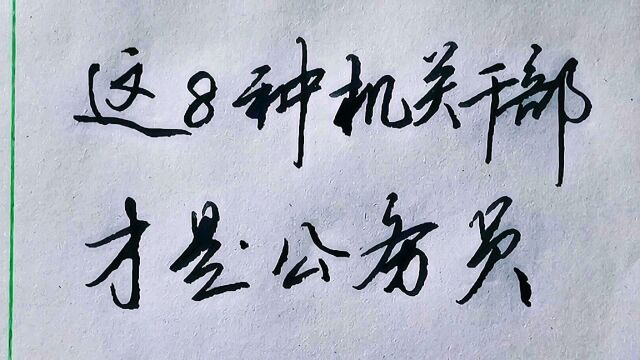 这8种机关干部
才是公务员